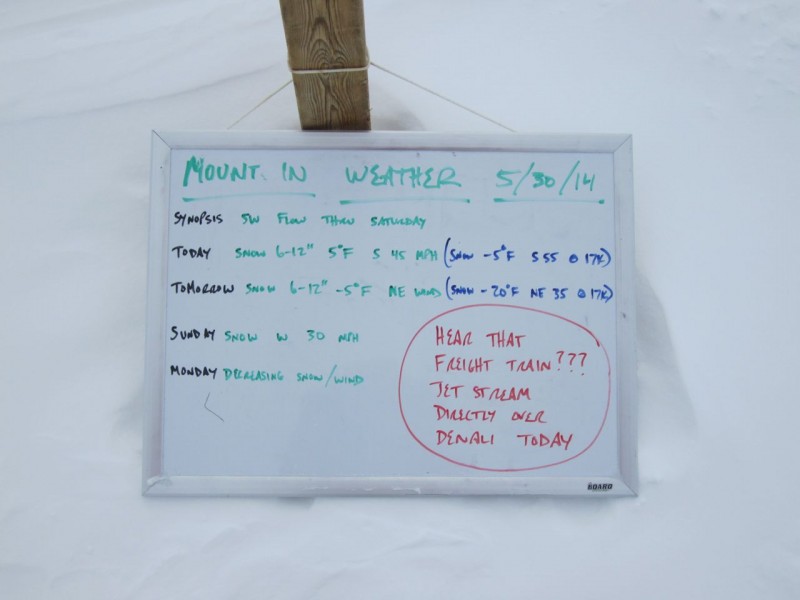 MOUNT IN WEATHER 5/30/14
SYNOPSIS SW FLOW THRU SATURDAY
TODAY SNOW 6-12" 5°F S 45 MPH (SNOW -5°F S 55 @ 17K)
TOMORROW SNOW 6-12" -5°F NE WIND (SNOW -20°F NE 35 @ 17K)
SUNDAY SNOW W 30 MPH
MONDAY DECREASING SNOW/WIND
HEAR THAT
FREIGHT TRAIN???
JET STREAM
DIRECTLY OVER
DENALI TODAY
BOARD